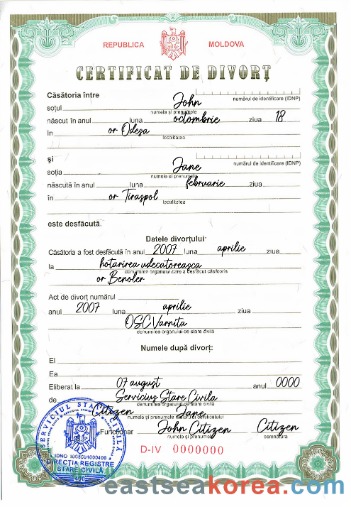 REPUBLICA MOLDOVA
CERTIFICAT DE DIVORȚ
Căsătoria între
soțul John numărul de identificare (IDNP)
numele și prenumele
născut în anul luna octombrie ziua 18
în or Odesa
localitatea
și
soția Jane numărul de identificare (IDNP)
numele și prenumele
născută în anul luna februarie ziua
în or Tiraspol
localitatea
este desfăcută.
Datele divorțului
Căsătoria a fost desfăcută în anul 2007 luna aprilie
la hotarirea
denumirea organului care a desfăcut căsătoria
or Bender
Act de divorț numărul
anul 2007 luna aprilie ziua
OSC Varnita
denumirea organului de stare civilă
Numele după divorț:
El
Ea
Eliberat la 07 august anul 0000
Serviciul Stare Civila
denumirea organului de stare civilă
Citizen Jane
numele și prenumele
Funcționar John Citizen Citizen
numele și prenumele semnătura
D-IV 0000000
SERVICIUL STARE CIVILĂ
DIRECȚIA REGISTRE
STARE CIVILĂ
eastseakorea.com